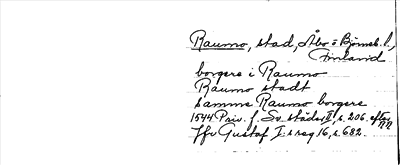 Raumo, stad, Åbo o Björneb. l.,
Finland
borgere i Raumo
Raumo stadt
samme Raumo borgere
1544 Priv. f. Sv. städer II, s. 206. efter
Jfr Gustaf I:s reg 16, s. 682.